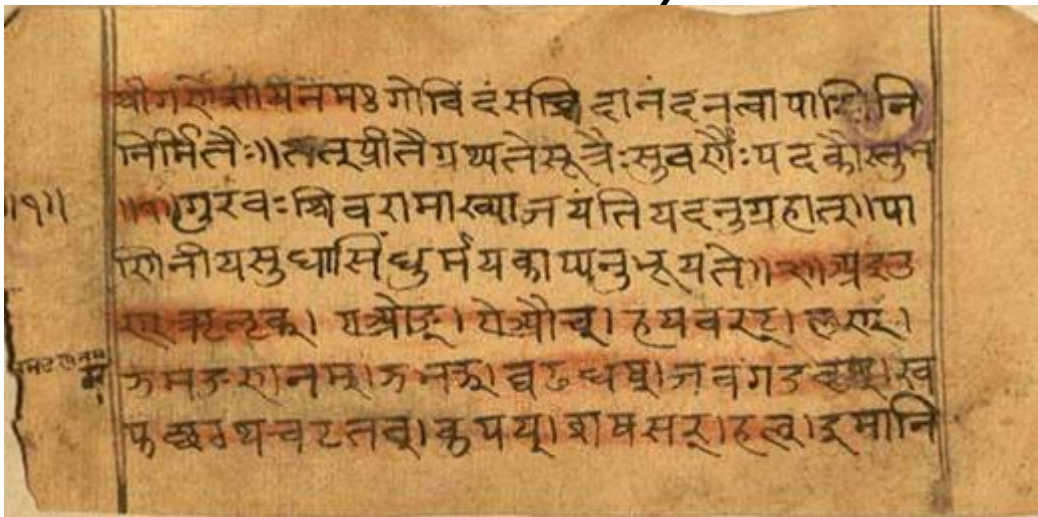 श्रीगणेशायनमः गोविंदंसच्चिदानंदंनत्वापाणिनि
निर्मितैः॥तत्प्रीतैग्रथ्यतेसूत्रैःसुवर्णैःपदकौस्तुभ
॥१॥ गुरवःशिवरामाख्याजयंतियदनुग्रहात्॥पा
णिनीयसुधासिंधुर्मयकाप्यनुभूयते॥ अइउ
ण् ऋलृक्। एओङ्। ऐऔच्। हयवरट्। लण्।
ञमङणनम्।झभञ्।घढधष्।जबगडदश्।ख
फछठथचटतव्।कपय्।शषसर्।हल्।इमानि